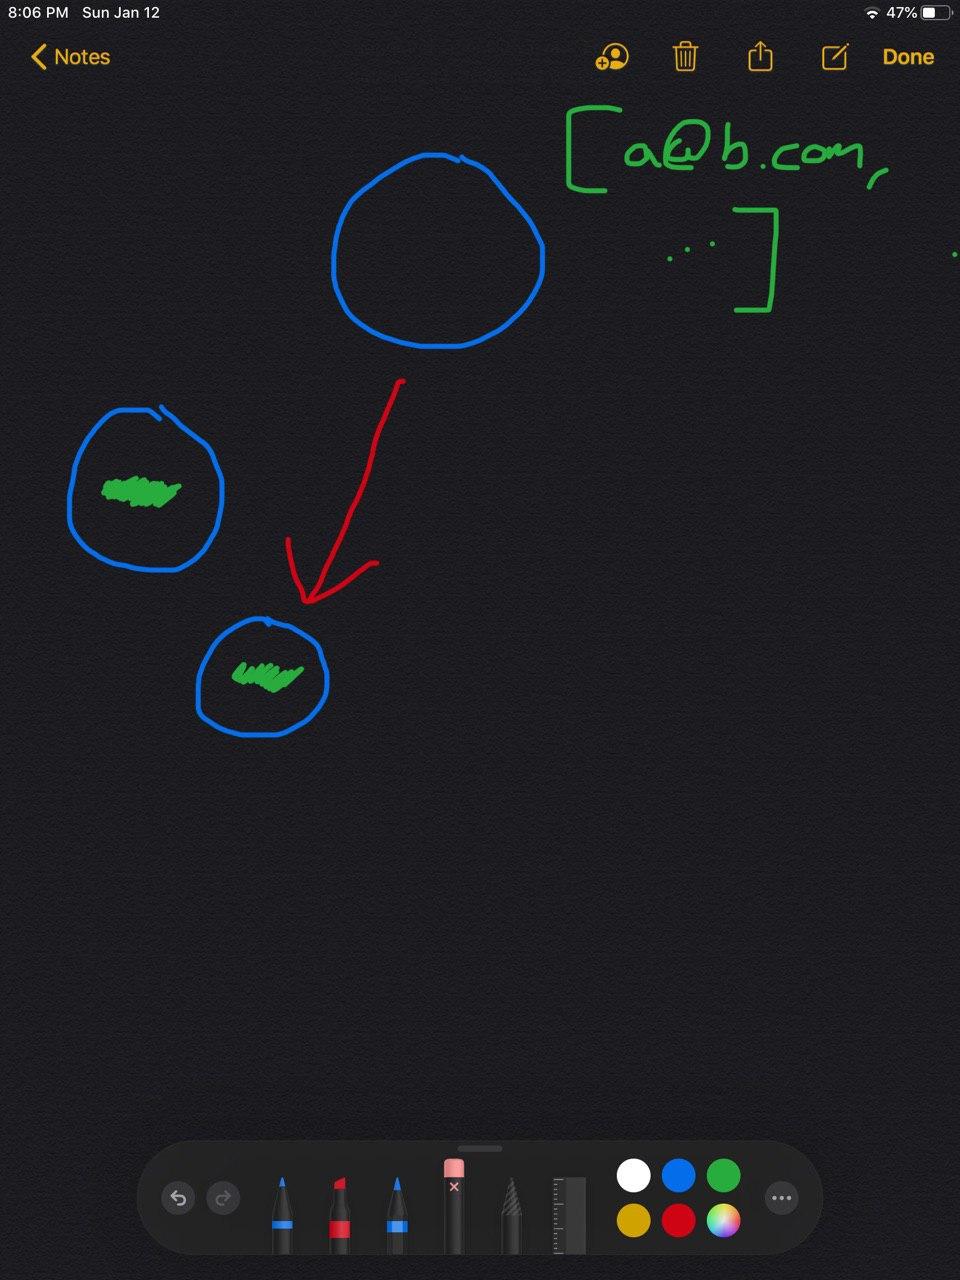 8:06 PM Sun Jan 12 47%
Notes Done
[a@b.com,
...]